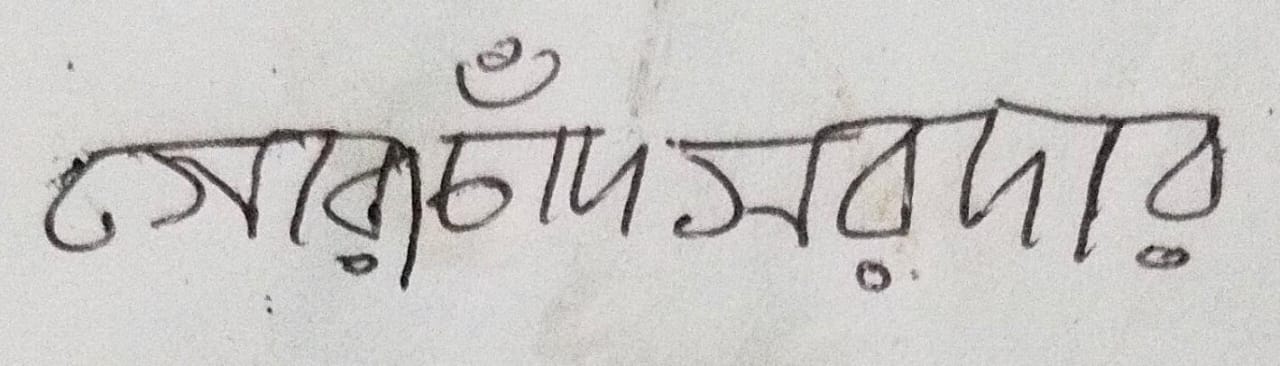 সোরাচাঁদ সরদার